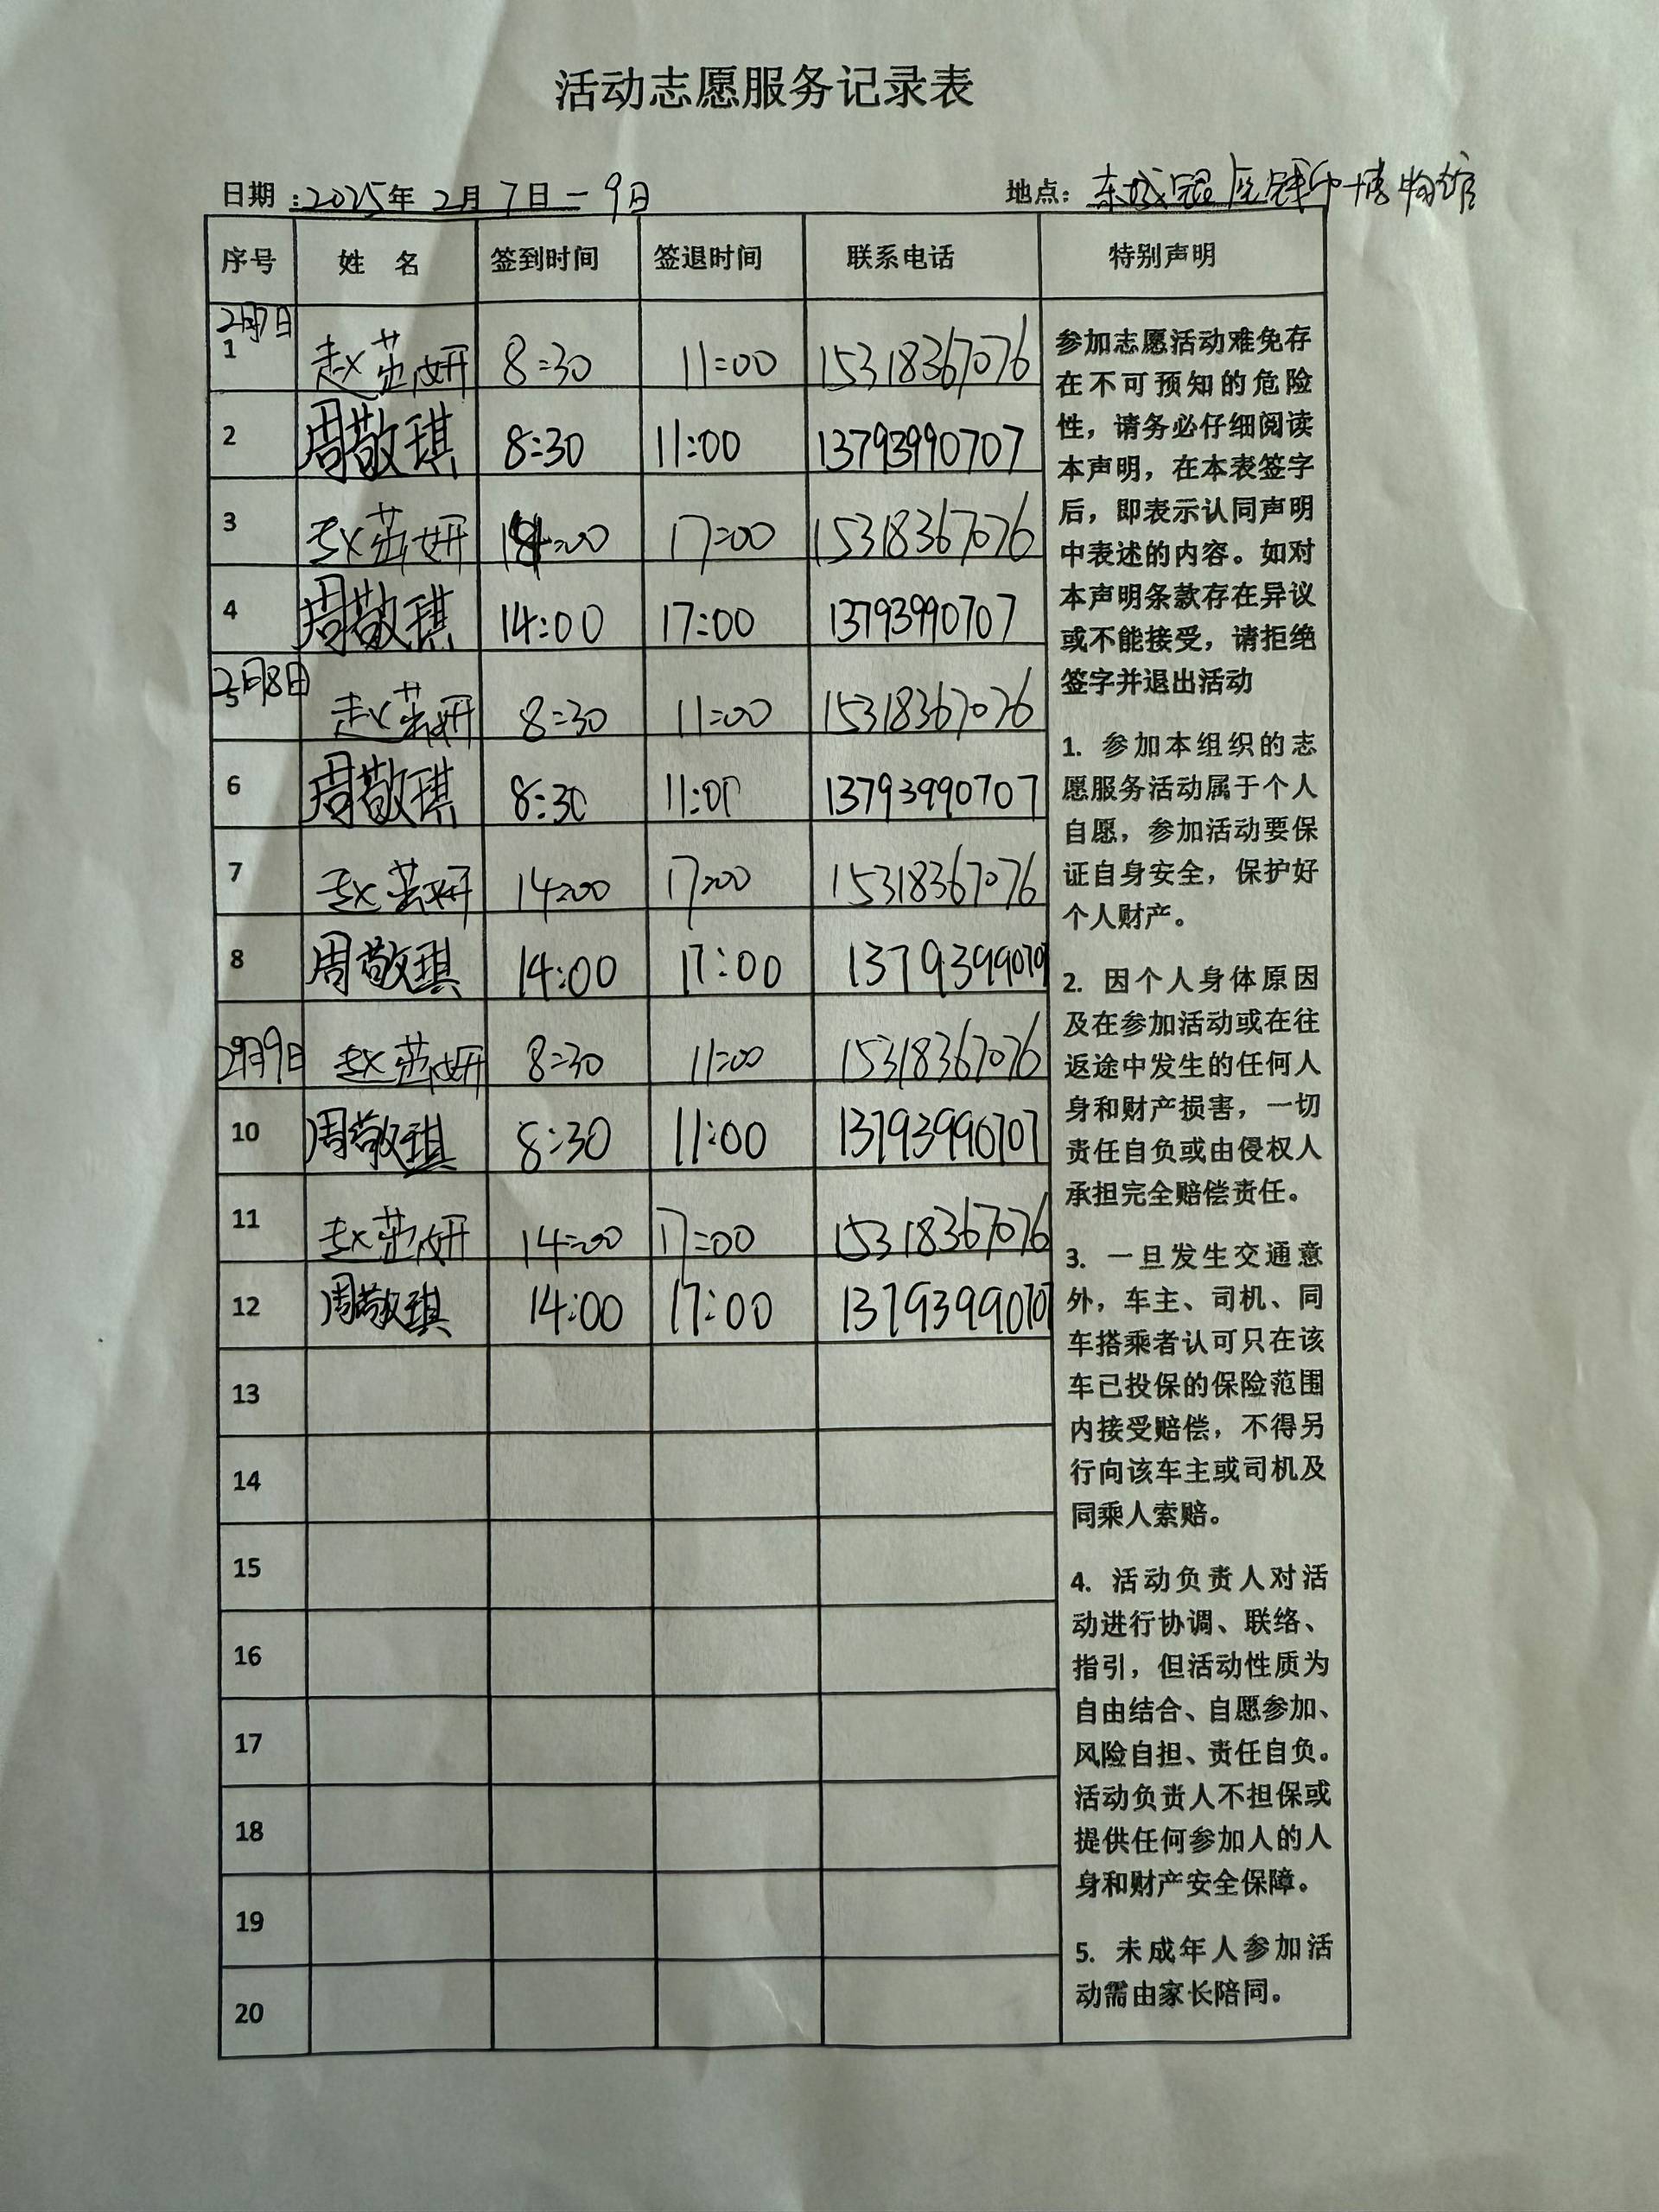 活动志愿服务记录表
日期：2025年2月7日－9日 地点：东城
序号 姓 名 签到时间 签退时间 联系电话 特别声明
2月7日
1 赵 妍 8:30 11:00 15318367076
2 周敬琪 8:30 11:00 13793990707
3 赵 妍 14:00 17:00 15318367076
4 周敬琪 14:00 17:00 13793990707
2月8日
5 赵 妍 8:30 11:00 15318367076
6 周敬琪 8:30 11:00 13793990707
7 赵 妍 14:00 17:00 15318367076
8 周敬琪 14:00 17:00 13793990707
2月9日
9 赵 妍 8:30 11:00 15318367076
10 周敬琪 8:30 11:00 13793990707
11 赵 妍 14:00 17:00 15318367076
12 周敬琪 14:00 17:00 13793990707
13
14
15
16
17
18
19
20
参加志愿活动难免存
在不可预知的危险
性，请务必仔细阅读
本声明，在本表签字
后，即表示认同声明
中表述的内容。如对
本声明条款存在异议
或不能接受，请拒绝
签字并退出活动
1. 参加本组织的志
愿服务活动属于个人
自愿，参加活动要保
证自身安全，保护好
个人财产。
2. 因个人身体原因
及在参加活动或在往
返途中发生的任何人
身和财产损害，一切
责任自负或由侵权人
承担完全赔偿责任。
3. 一旦发生交通意
外，车主、司机、同
车搭乘者认可只在该
车已投保的保险范围
内接受赔偿，不得另
行向该车主或司机及
同乘人索赔。
4. 活动负责人对活
动进行协调、联络、
指引，但活动性质为
自由结合、自愿参加、
风险自担、责任自负。
活动负责人不担保或
提供任何参加人的人
身和财产安全保障。
5. 未成年人参加活
动需由家长陪同。